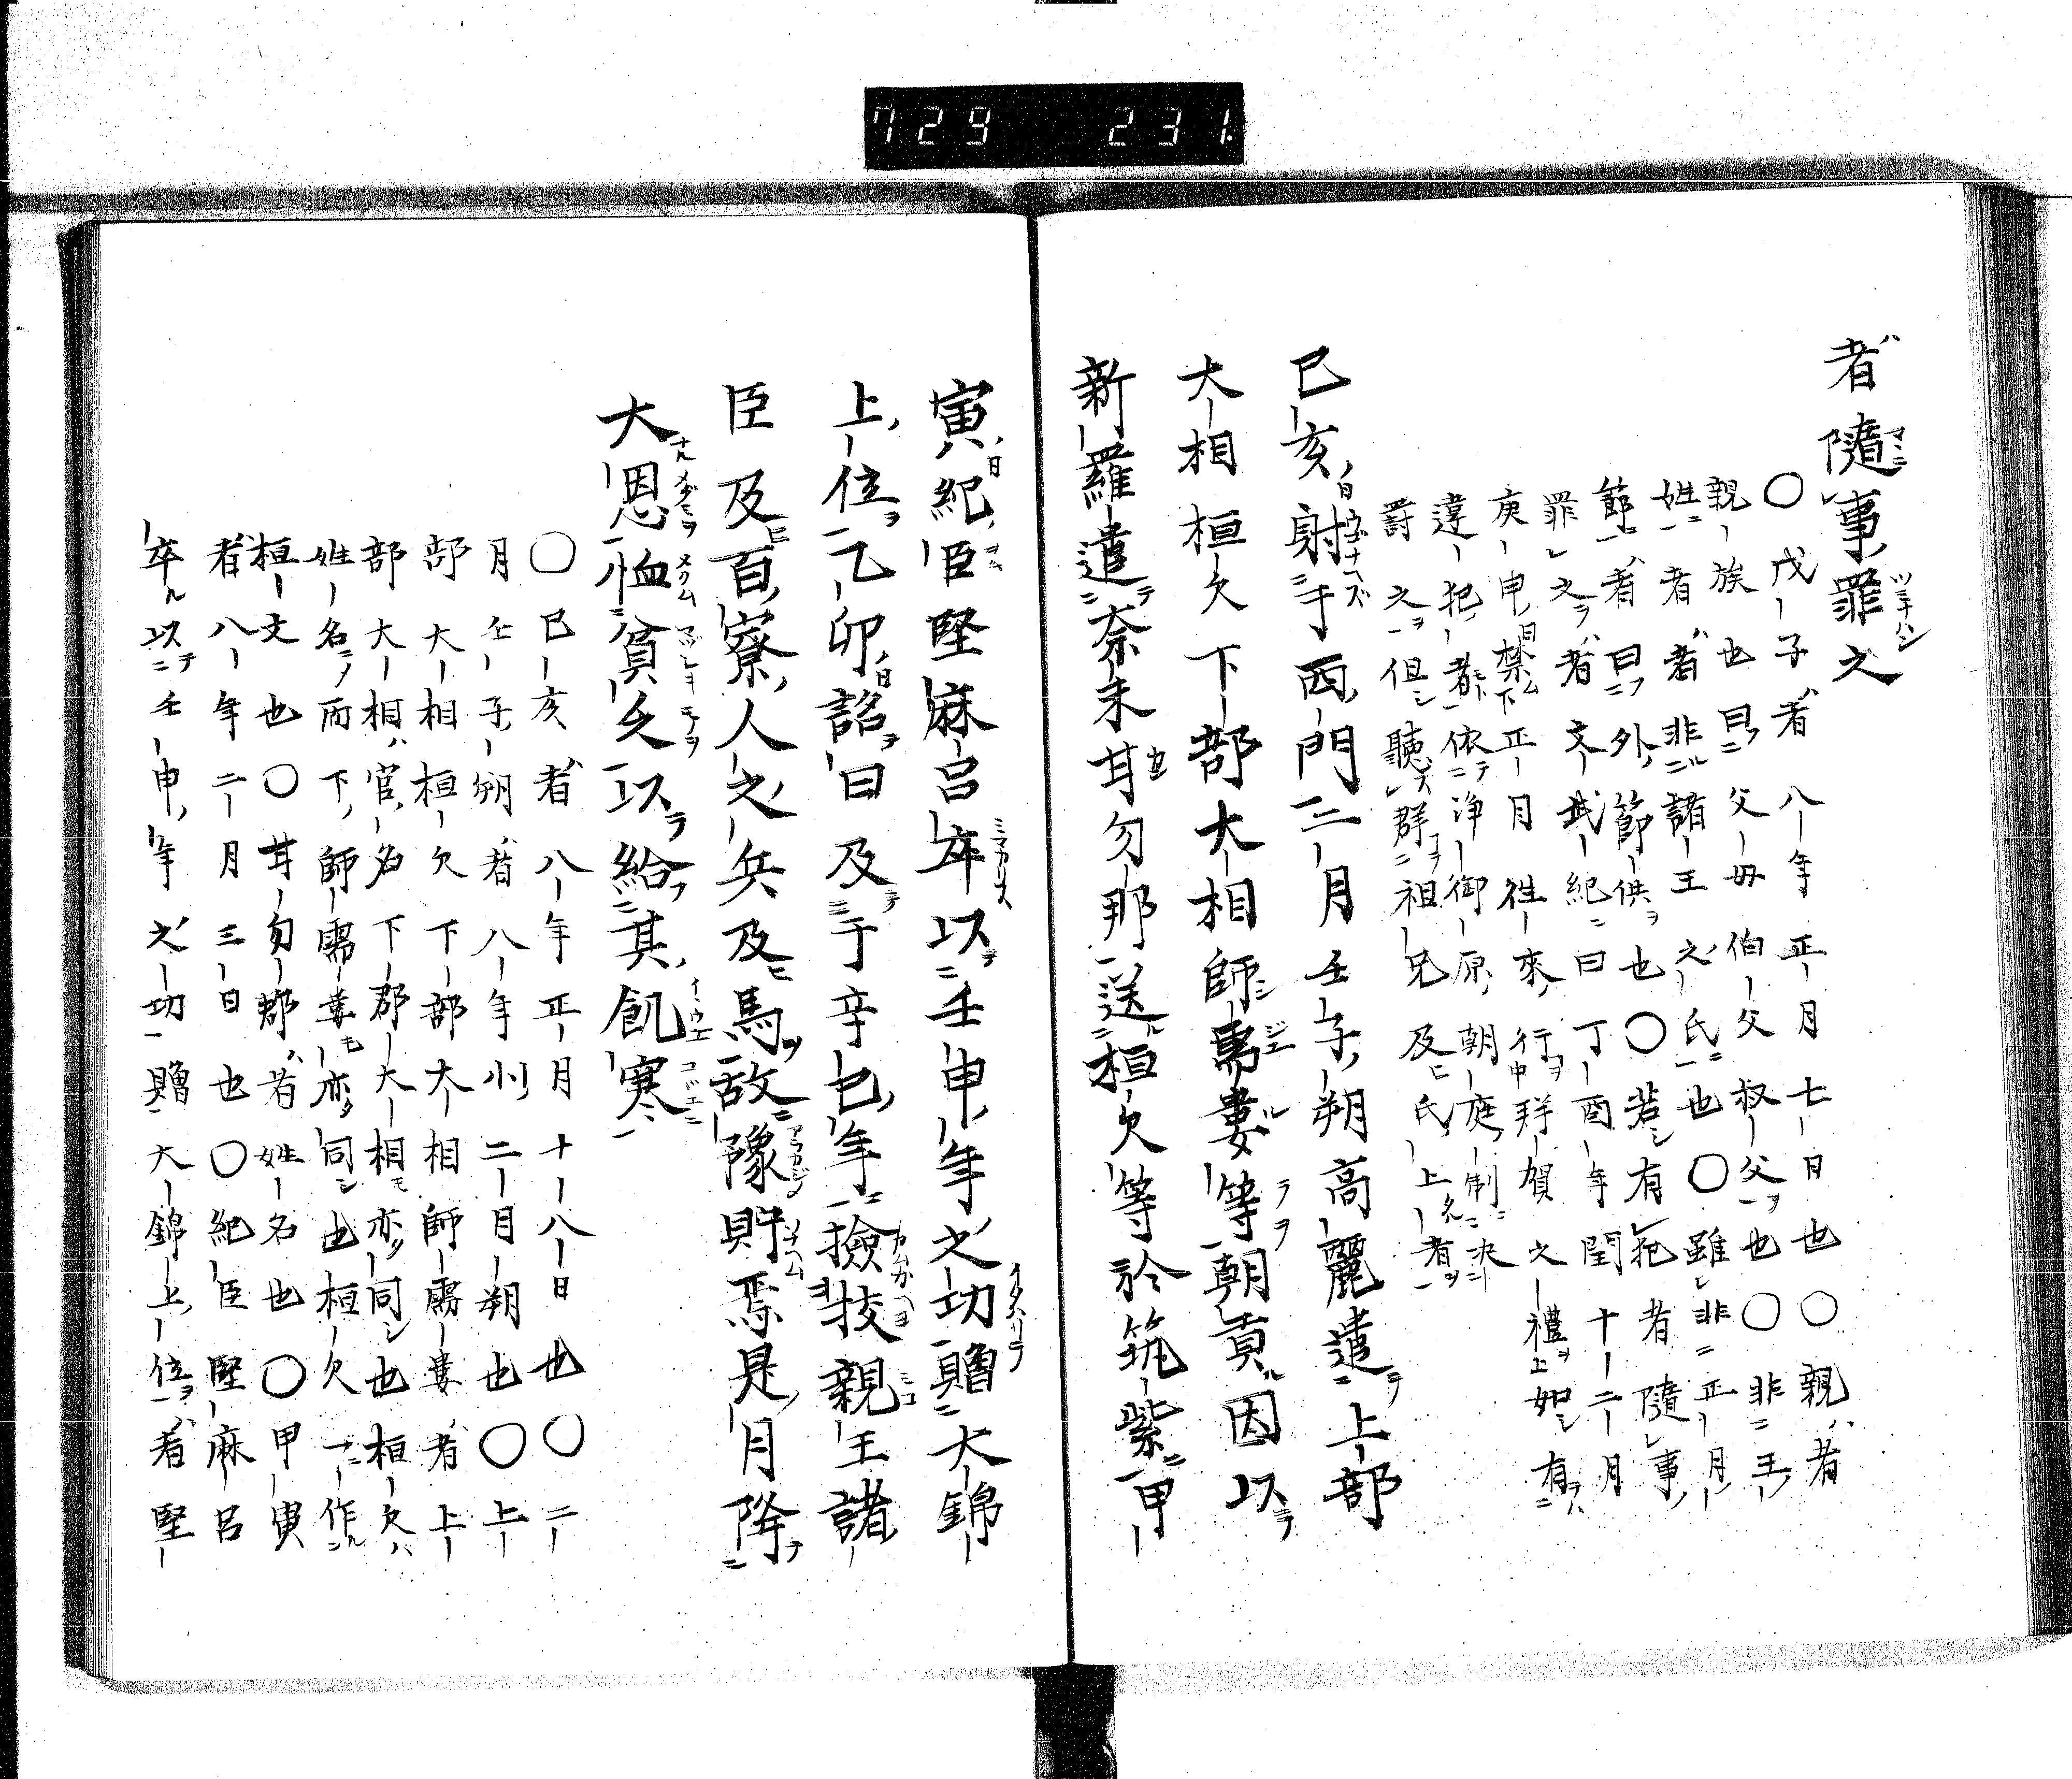 729 231
者隨事罪之
〇戊子者八年正月七日也〇親者
親族也曰父母伯父叔父也〇非王
姓者者非諸王之氏也〇雖非正月
節者曰外節供也〇若有犯者隨事
罪之者文武紀曰丁酉年閏十二月
庚申禁正月往來行拜賀之禮如有
違犯者依浄御原朝庭制決
罸之但聽拜祖兄及氏上者
己亥射于西門二月壬子朔高麗遣上部
大相桓欠下部大相師需婁等朝貢因以
新羅遣奈末甘勿那送桓欠等於筑紫甲
寅紀臣堅麻呂卒以壬申年之功贈大錦
上位乙卯詔曰及于辛巳年撿挍親王諸
臣及百寮人之兵及馬故豫貯焉是月降
大恩恤貧乏以給其飢寒
〇己亥者八年正月十八日也〇二
月壬子朔者八年小二月朔也〇上
部大相桓欠下部大相師需婁者上
部大相官名下部大相亦同也桓欠
姓名而下師需婁亦同也桓欠一作
桓文也〇甘勿那者姓名也〇甲寅
者八年二月三日也〇紀臣堅麻呂
卒以壬申年之功贈大錦上位者堅